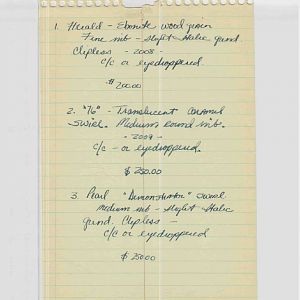 1. Herald - Ebonite wood grain
Fine nib - slight italic grind.
Clipless - 2008 -
c/c or eyedroppered
$200.00
2. "76" - Translucent Caramel
swirl. Medium round nib.
- 2009 -
c/c - or eyedropper.
$250.00
3. Pearl "Demonstrator" swirl.
medium nib - slight italic
grind. Clipless -
c/c or eyedroppered
$